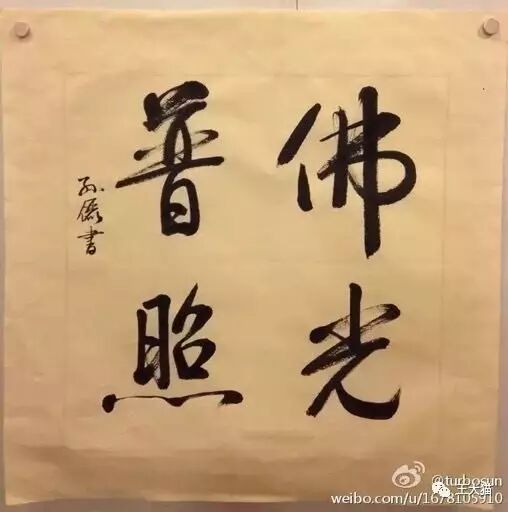 佛光
普照
孙俪書
@turbosun
王大猫
weibo.com/u/1678105910